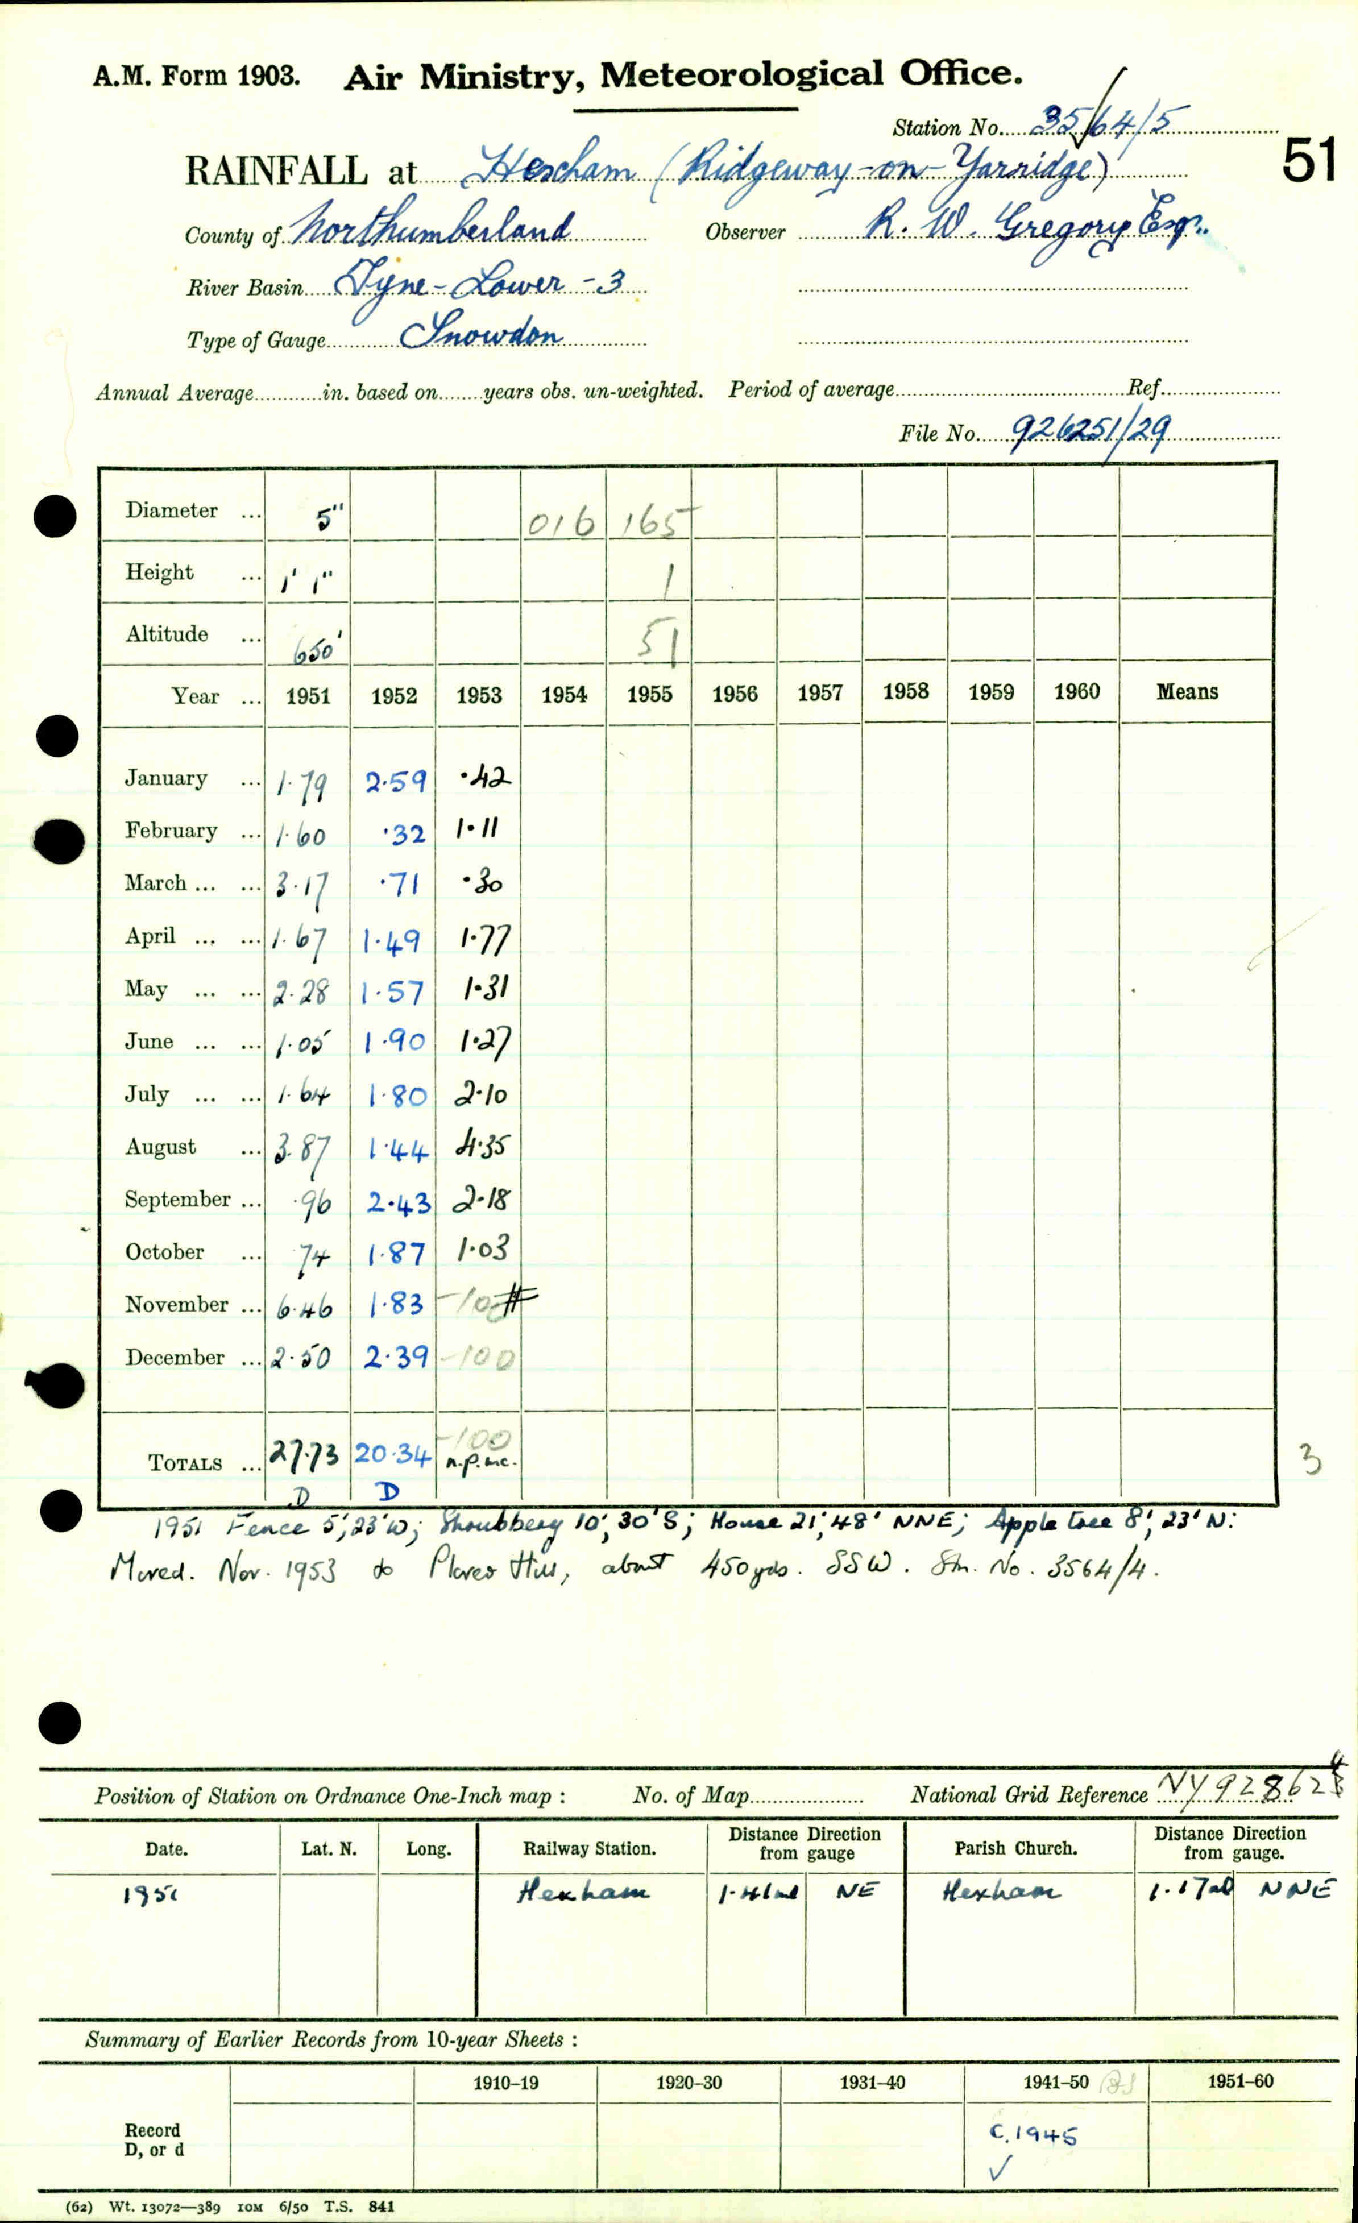 A.M. Form 1903. Air Ministry, Meteorological Office.
Station No. 3564/5
RAINFALL at Hexham (Ridgeway-on-Yarridge)
51
County of Northumberland Observer R. W. Gregory Esq.
River Basin Tyne-Lower-3
Type of Gauge Snowdon
Annual Average in. based on years obs. un-weighted. Period of average Ref.
File No. 926251/29
Diameter ... 5" 016 165
Height ... 1' 1" 1
Altitude ... 650' 51
Year ... 1951 1952 1953 1954 1955 1956 1957 1958 1959 1960 Means
January ... 1.79 2.59 .42
February ... 1.60 .32 1.11
March ... ... 3.17 .71 .30
April ... ... 1.67 1.49 1.77
May ... ... 2.28 1.57 1.31
June ... ... 1.05 1.90 1.27
July ... ... 1.64 1.80 2.10
August ... 3.87 1.44 4.35
September ... .96 2.43 2.18
October ... .74 1.87 1.03
November ... 6.46 1.83 -100 #
December ... 2.50 2.39 -100
-100
TOTALS ... 27.73 20.34 n.p. inc.
D D
3
1951 Fence 5', 23' W; Shrubbery 10', 30' S; House 21', 48' NNE; Apple tree 8', 23' N:
Moved. Nov. 1953 to Hill, about 450 yds. SSW. Stn. No. 3564/4.
Position of Station on Ordnance One-Inch map : No. of Map National Grid Reference NY 928623 4
Date. Lat. N. Long. Railway Station. Distance from Direction gauge Parish Church. Distance from Direction gauge.
1951 Hexham 1.41 ml NE Hexham 1.17 ml NNE
Summary of Earlier Records from 10-year Sheets :
1910–19 1920–30 1931–40 1941–50 1951–60
Record D, or d
c.1945
✓
(62) Wt. 13072—389 10M 6/50 T.S. 841